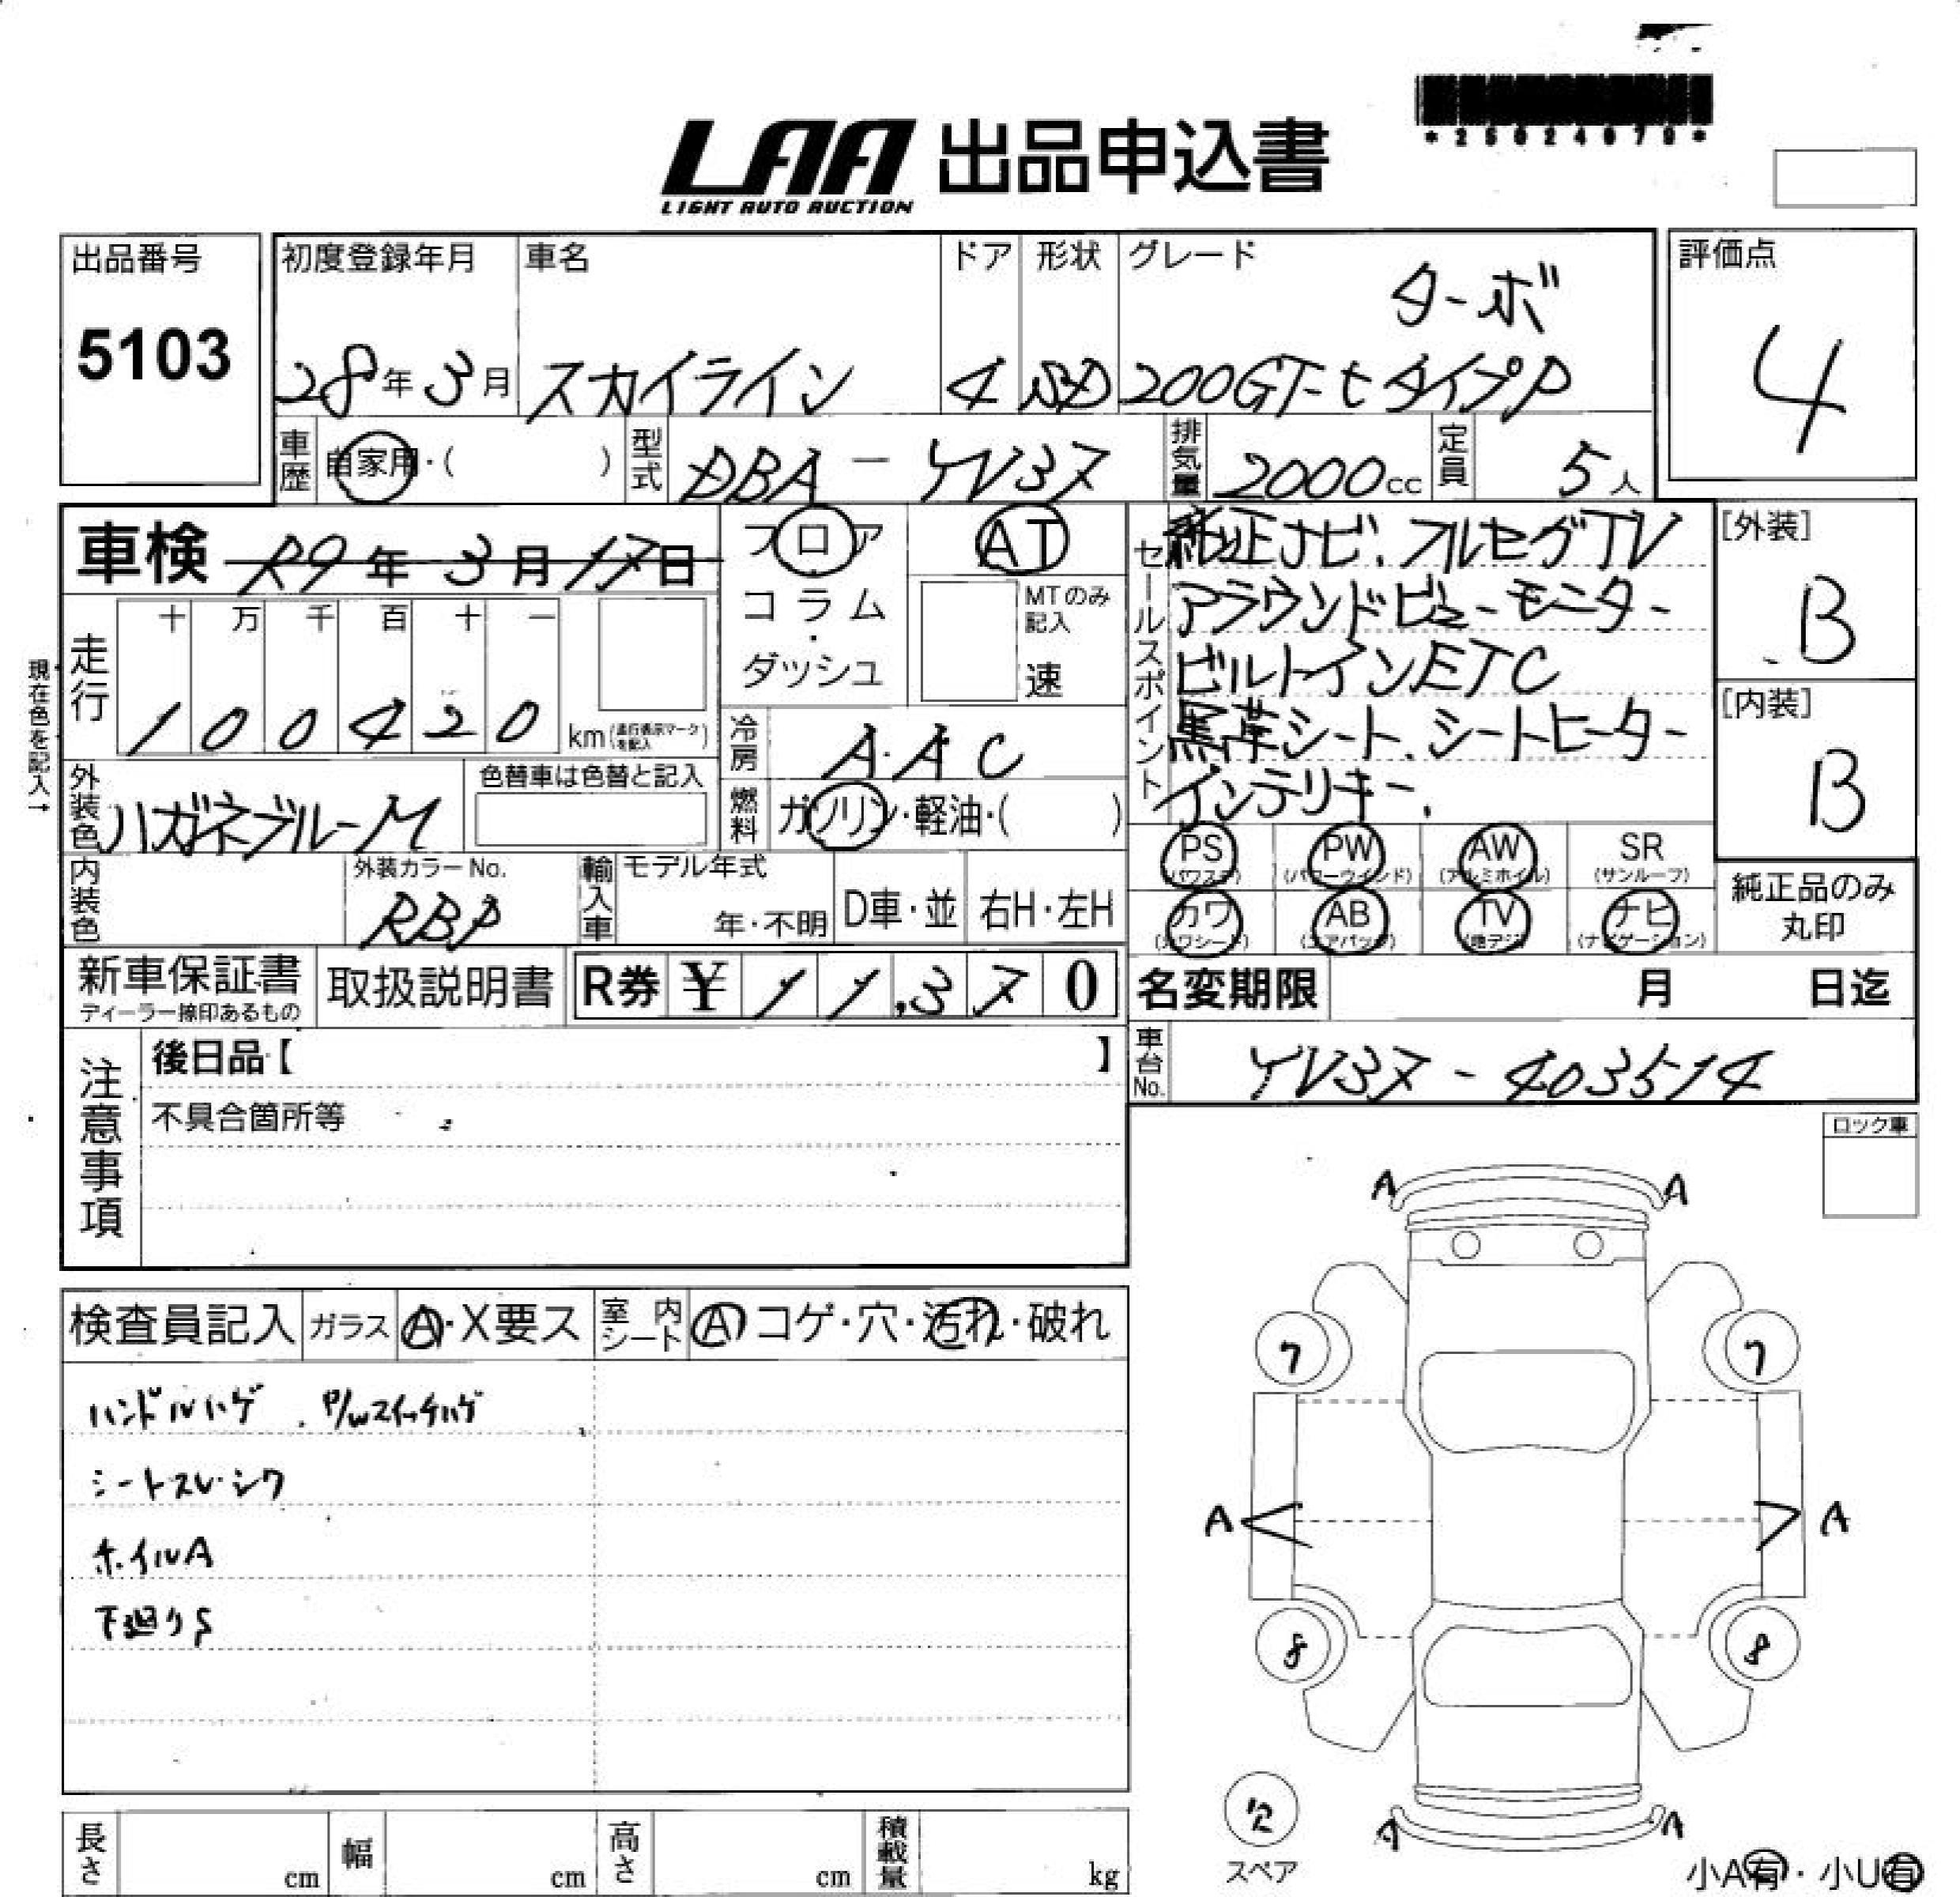 *25024079*
LAA 出品申込書
LIGHT AUTO AUCTION
出品番号 5103
初度登録年月 28年3月
車名 スカイライン
ドア 4
形状 SD
グレード ターボ
200GT-t タイプP
評価点 4
車歴 自家用・( )
型式 DBA - YV37
排気量 2000cc
定員 5人
車検 R9年3月17日
フロア・コラム・ダッシュ
AT
MTのみ記入 速
セールスポイント
純正ナビ、フルセグTV
アラウンドビューモニター
ビルトインETC
黒革シート、シートヒーター
インテリキー、
[外装] B
[内装] B
現在色を記入→
走行 十 万 千 百 十 一
1 0 0 4 2 0 km(走行表示マークを記入)
冷房 AAC
燃料 ガソリン・軽油・( )
外装色 ハガネブルーM
色替車は色替と記入
内装色
外装カラーNo. RBP
輸入車 モデル年式 年・不明 D車・並 右H・左H
PS (パワステ) PW (パワーウインド) AW (アルミホイル) SR (サンルーフ)
カワ (カワシート) AB (エアバック) TV (地デジ) ナビ (ナビゲーション)
純正品のみ丸印
新車保証書
ディーラー捺印あるもの
取扱説明書
R券 ¥ 11,370
名変期限 月 日迄
車台No. YV37-403514
注意事項
後日品【 】
不具合箇所等
ロック車
検査員記入 ガラス A・X要ス 室内シート A コゲ・穴・汚れ・破れ
ハンドルハゲ、P/Wスイッチハゲ
シートスレ・シワ
ホイルA
下廻りS
A A
7 7
A A
8 8
欠
スペア
A A
小A有・小U有
長さ cm 幅 cm 高さ cm 積載量 kg